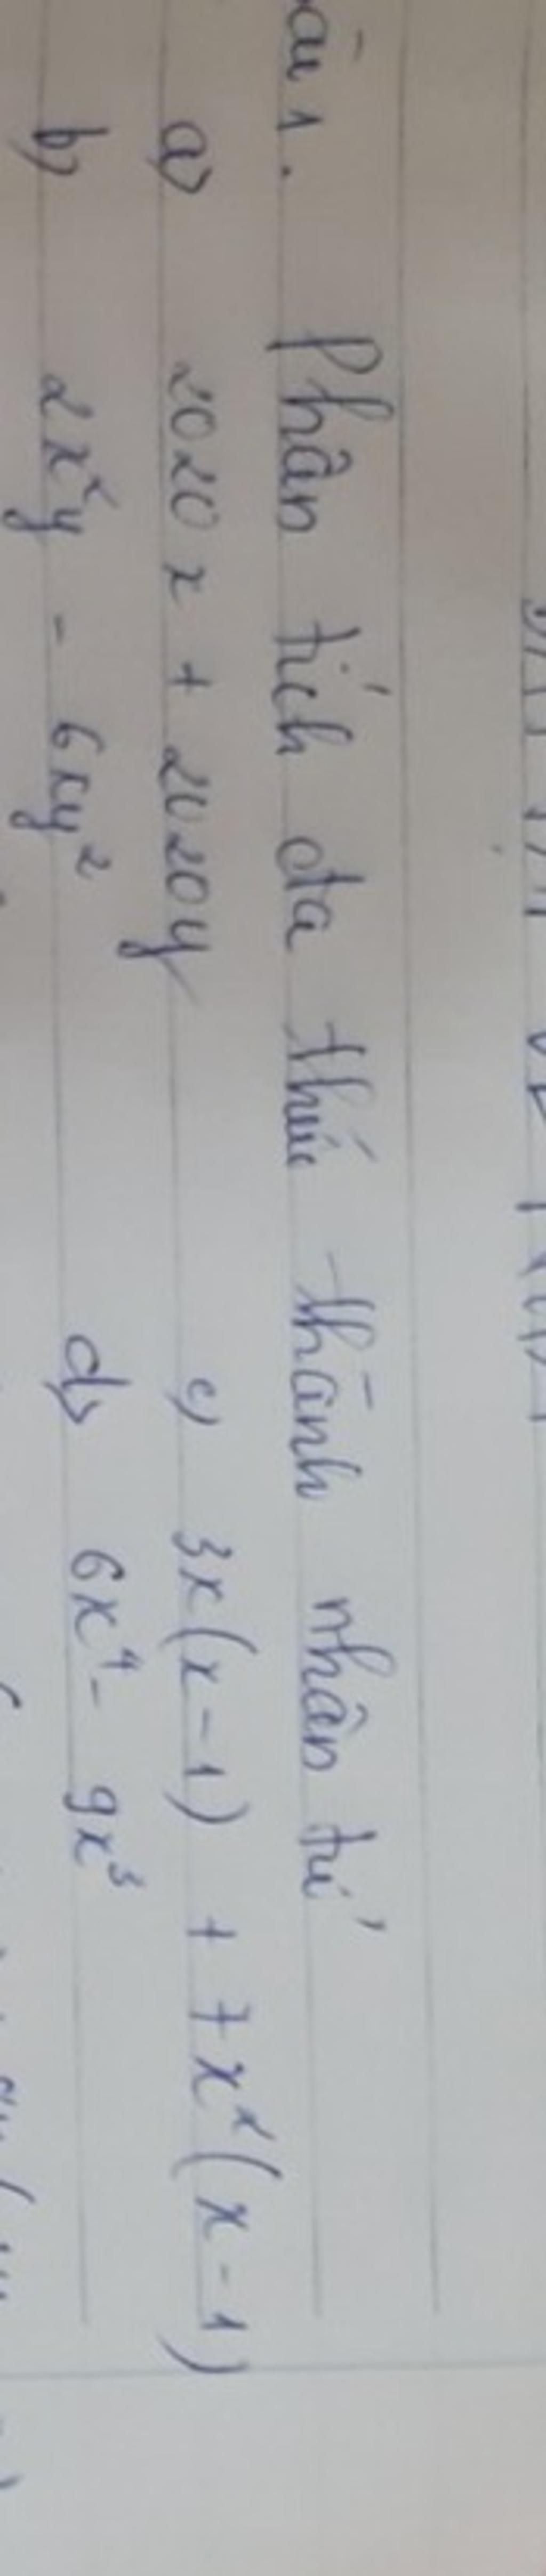 Phân tích đa thức thành nhân tử
a) 2020x + 2020y c) 3x(x-1) + 7x²(x-1)
b) 2x²y - 6xy² d) 6x⁴ - 9x³